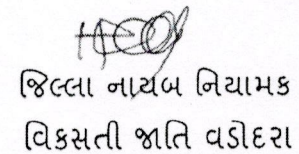 જિલ્લા નાયબ નિયામક
વિકસતી જાતિ વડોદરા